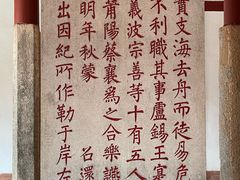 實支海去舟而徒易危
不利職其事盧錫王寔
義波宗善等十有五人
莆陽蔡襄為之合樂讌
明年秋蒙 召還
出因紀所作勒于岸左